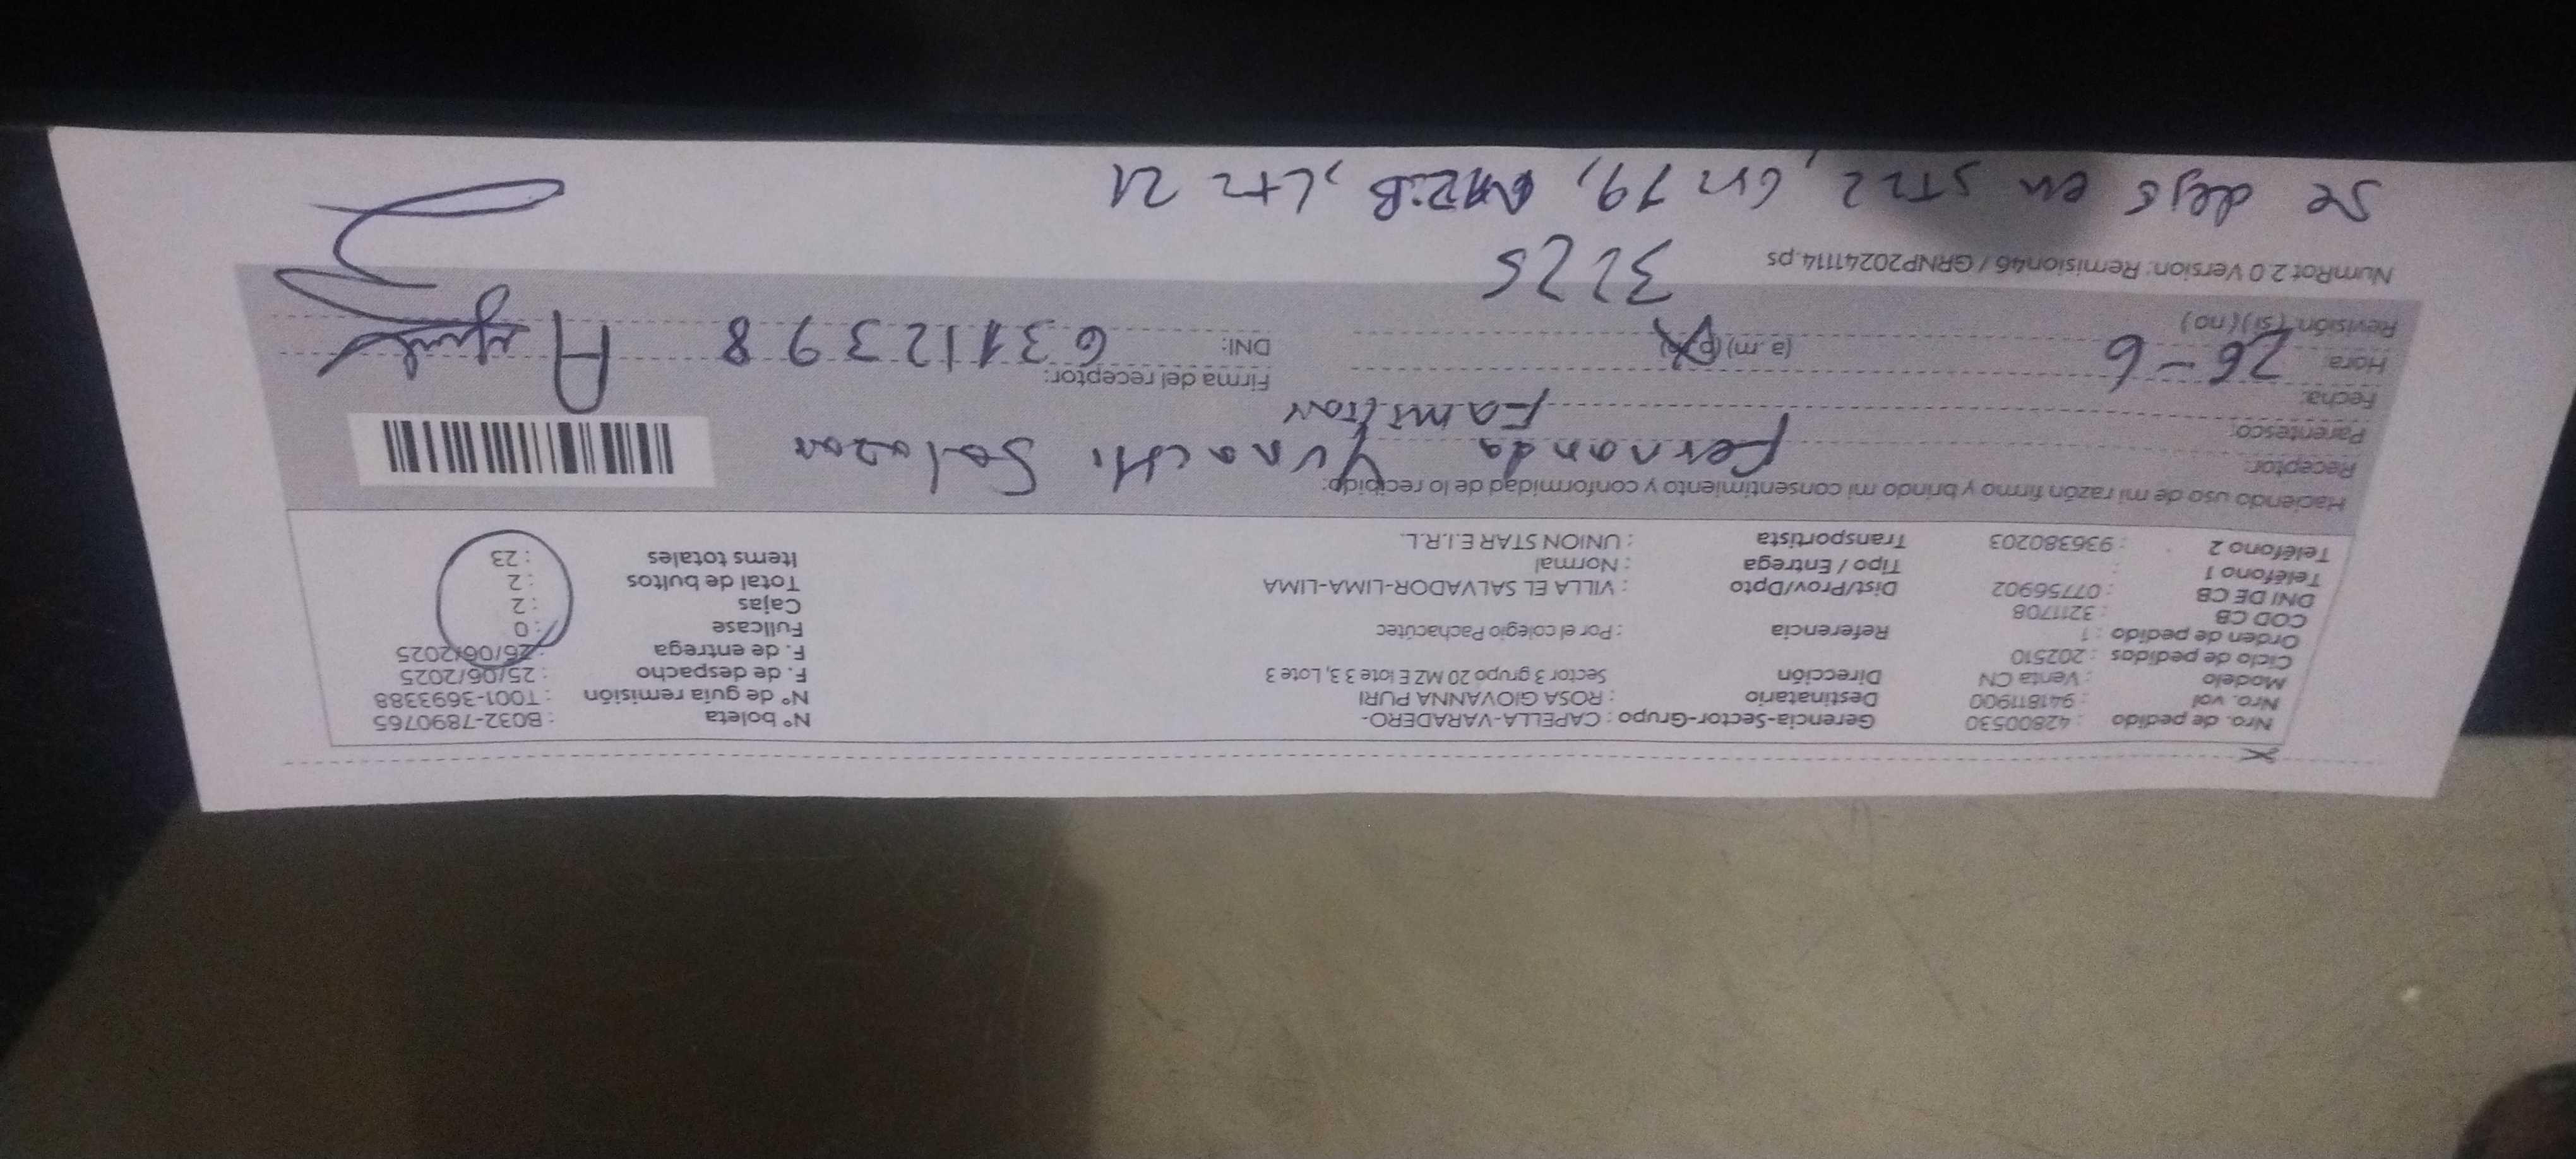 Nro. de pedido : 42800530 Gerencia-Sector-Grupo : CAPELLA-VARADERO- Nº boleta : B032-7890765
Nro. vol : 941811900 Destinatario : ROSA GIOVANNA PURI Nº de guía remisión : T001-3693388
Modelo : Venta CN Dirección Sector 3 grupo 20 MZ E lote 3 3, Lote 3 F. de despacho : 25/06/2025
Ciclo de pedidos : 202510 F. de entrega : 26/06/2025
Orden de pedido : 1 Referencia : Por el colegio Pachacútec Fullcase : 0
COD CB : 3211708 Cajas : 2
DNI DE CB : 07756902 Dist/Prov/Dpto : VILLA EL SALVADOR-LIMA-LIMA Total de bultos : 2
Teléfono 1 : Tipo / Entrega : Normal Items totales : 23
Teléfono 2 : 936380203 Transportista : UNION STAR E.I.R.L.
Haciendo uso de mi razón firmo y brindo mi consentimiento y conformidad de lo recibido:
Receptor: Fernanda Yunachi Salazar
Parentesco: Familiar
Fecha: 26-6 Firma del receptor:
Hora: (a. m) (p. m) DNI: 63112398
Revisión: (si) (no) 3225
NumRot 2.0 Version: Remision46 / GRNP20241114.ps
Se dejó en ST22, Gr 19, MZ:B, Lt 21